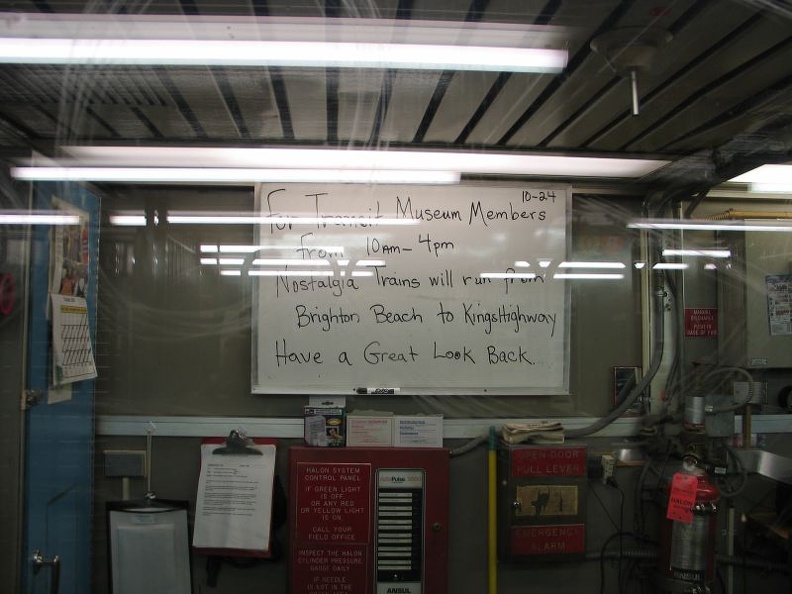 10-24
For Transit Museum Members
from 10AM-4pm
Nostalgia Trains will run from
Brighton Beach to Kings Highway
Have a Great Look Back.
HALON SYSTEM
CONTROL PANEL
IF GREEN LIGHT
IS OFF
OR ANY RED
OR YELLOW LIGHT
IS ON
CALL YOUR
FIELD OFFICE
INSPECT THE HALON
CYLINDER PRESSURE
GAUGE DAILY
IF NEEDLE
IS NOT IN THE
AutoPulse
ANSUL
OPEN DOOR
PULL LEVER
EMERGENCY
ALARM
MANUAL
DISCHARGE
PUSH IN
CASE OF FIRE
HALON
ANSUL